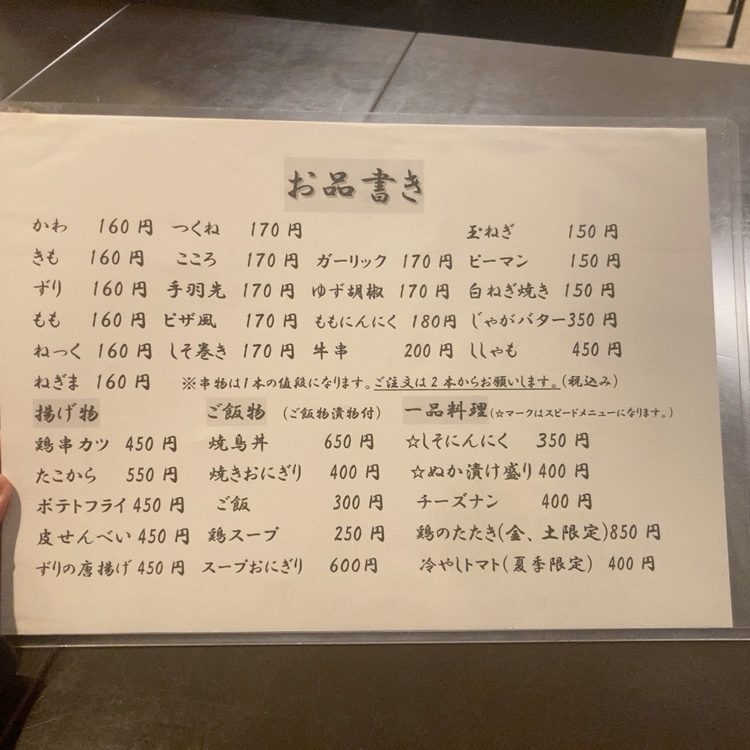 お品書き
かわ 160円 つくね 170円 玉ねぎ 150円
きも 160円 こころ 170円 ガーリック 170円 ピーマン 150円
ずり 160円 手羽先 170円 ゆず胡椒 170円 白ねぎ焼き 150円
もも 160円 ピザ風 170円 ももにんにく 180円 じゃがバター 350円
ねっく 160円 しそ巻き 170円 牛串 200円 ししゃも 450円
ねぎま 160円 ※串物は1本の値段になります。ご注文は2本からお願いします。(税込み)
揚げ物 ご飯物 (ご飯物漬物付) 一品料理(☆マークはスピードメニューになります。)
鶏串カツ 450円 焼鳥丼 650円 ☆しそにんにく 350円
たこから 550円 焼きおにぎり 400円 ☆ぬか漬け盛り 400円
ポテトフライ 450円 ご飯 300円 チーズナン 400円
皮せんべい 450円 鶏スープ 250円 鶏のたたき(金、土限定) 850円
ずりの唐揚げ 450円 スープおにぎり 600円 冷やしトマト(夏季限定) 400円